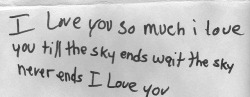 I Love you so much i love
you till the sky ends wait the sky
never ends I Love you